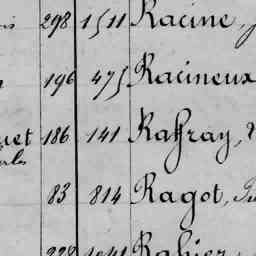 298 1511 Racine,
196 475 Racineux
uet 186 141 Raffray,
83 814 Ragot,
228 1041 Rahier,